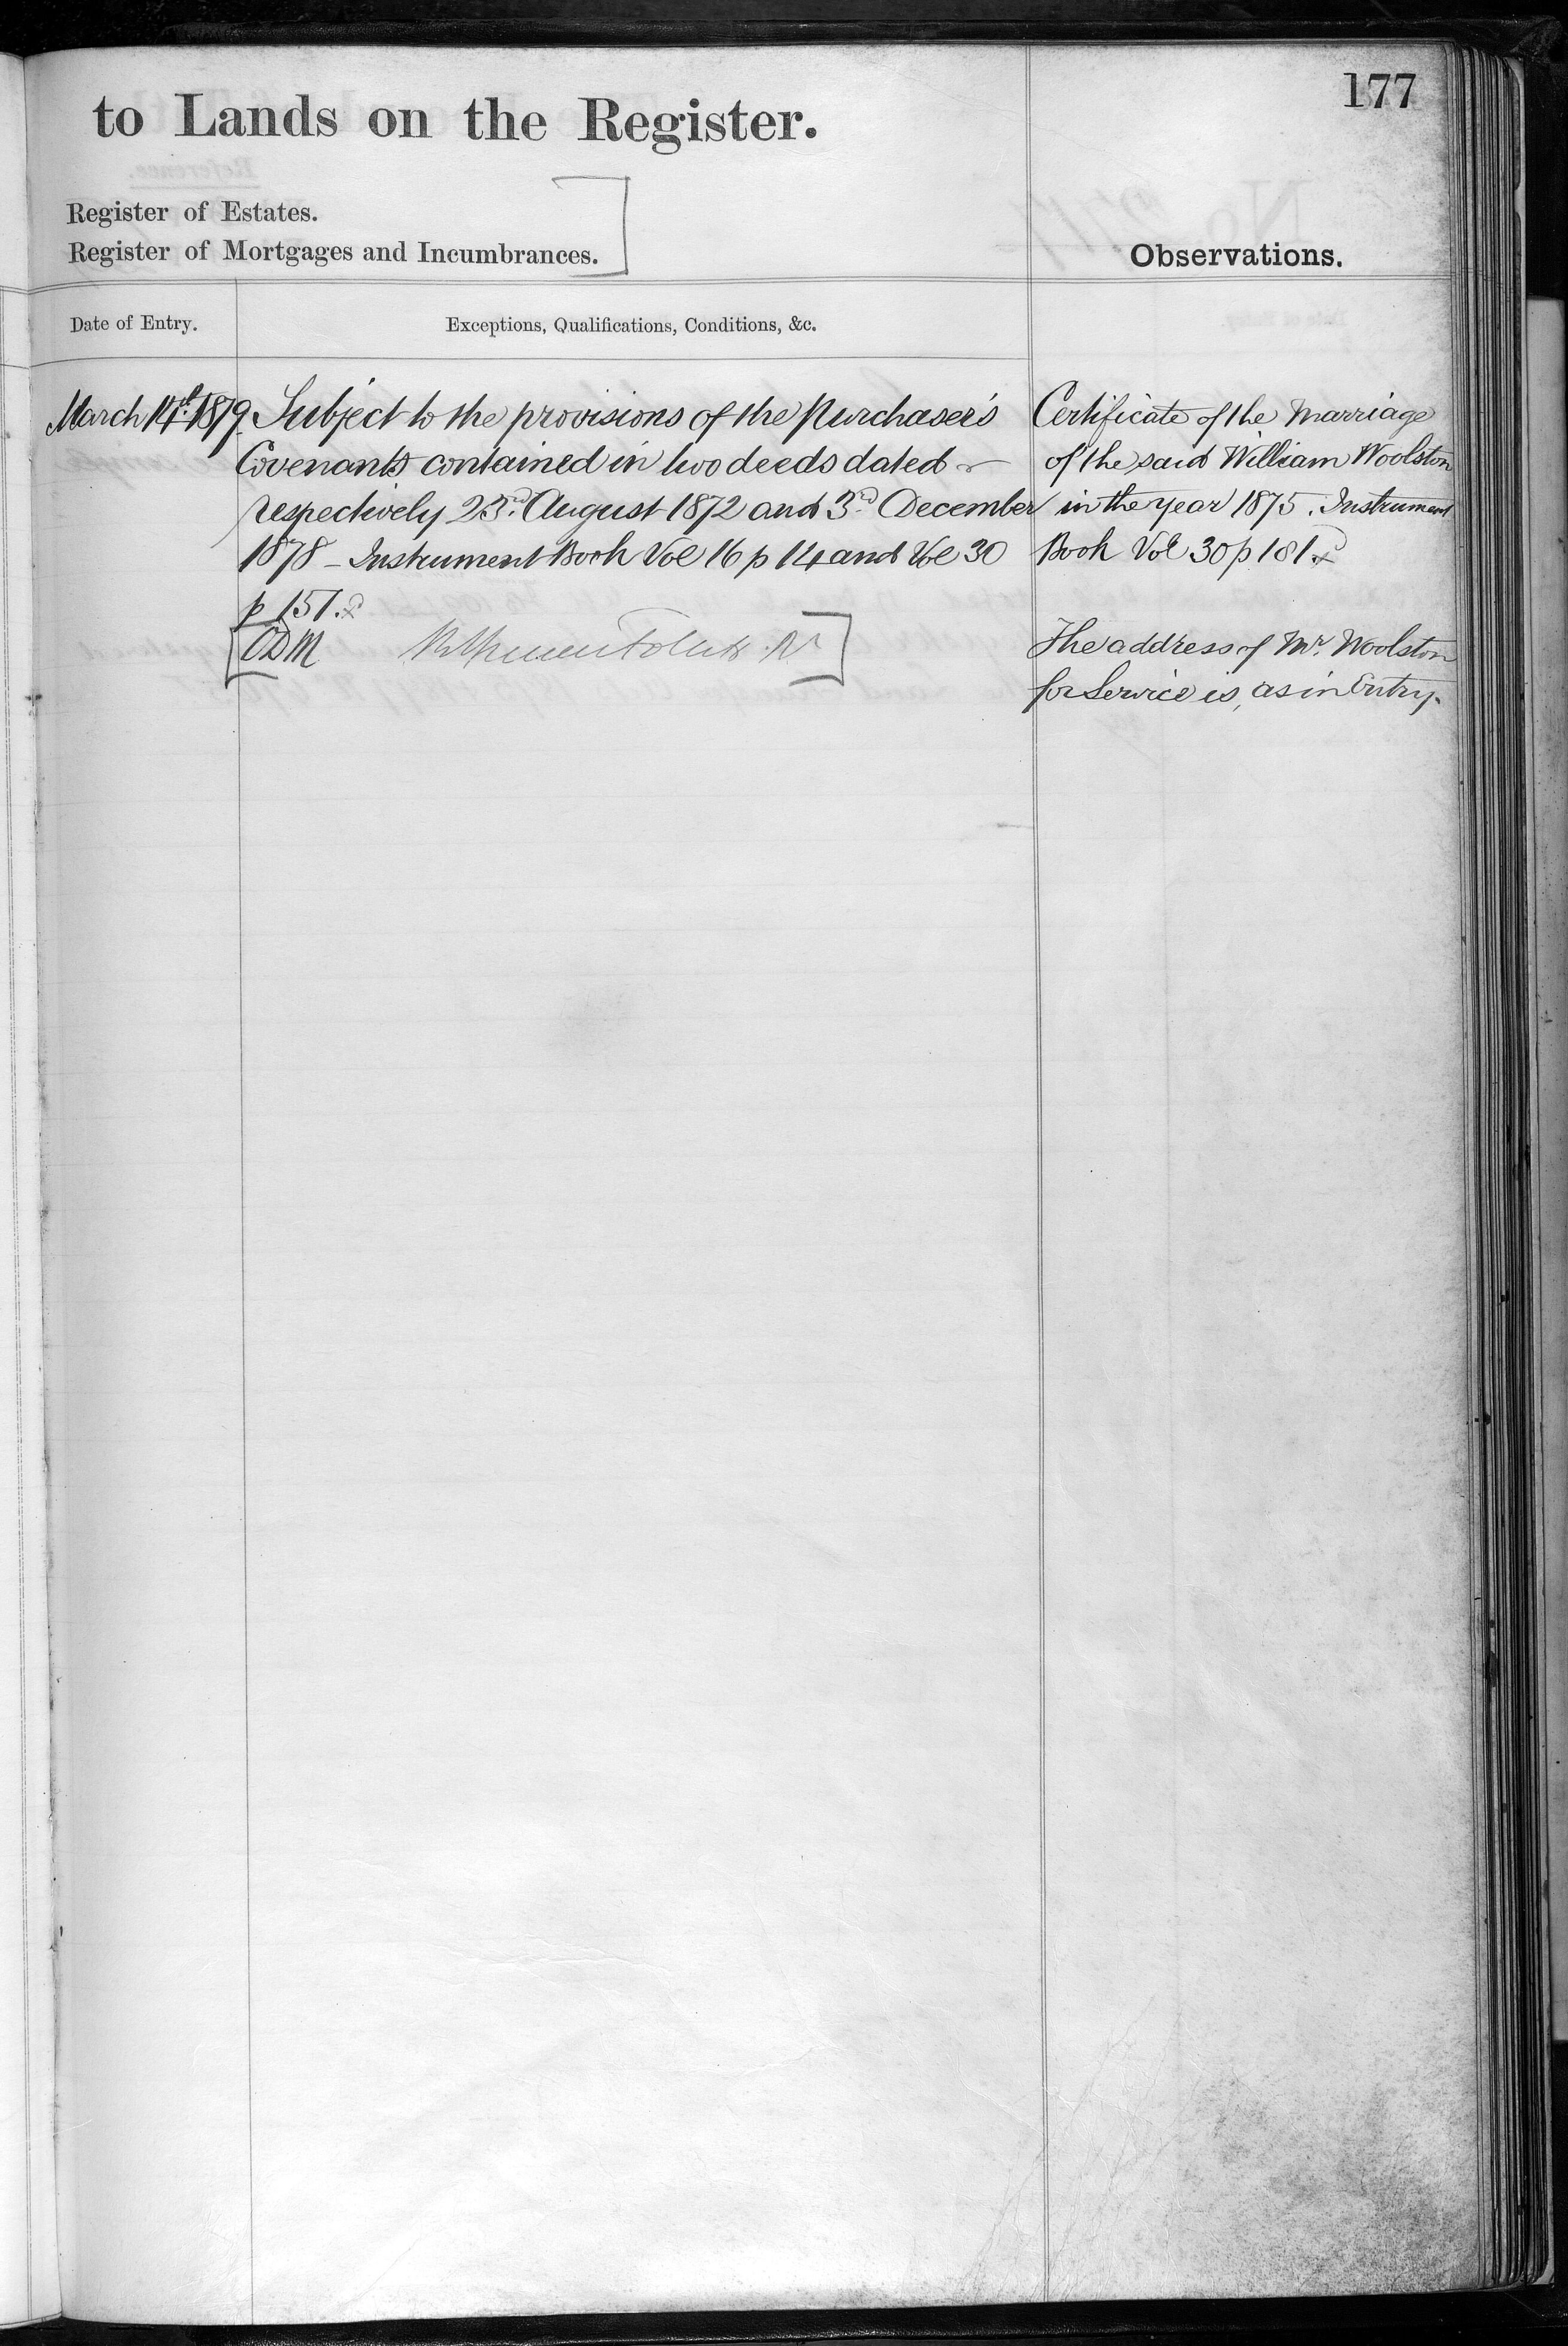 177
to Lands on the Register.
Register of Estates.
Register of Mortgages and Incumbrances.
Observations.
Date of Entry.
Exceptions, Qualifications, Conditions, &c.
March 14th. 1879
Subject to the provisions of the Purchaser's
Covenants contained in two deeds dated
respectively 23rd. August 1872 and 3rd December
1878 – Instrument Book Vol 16 p 14 and Vol 30
p 151.
CDM
Certificate of the Marriage
of the said William Woolston
in the year 1875. Instrument
Book Vol 30 p 181
The address of Mr. Woolston
for Service is, as in Entry.